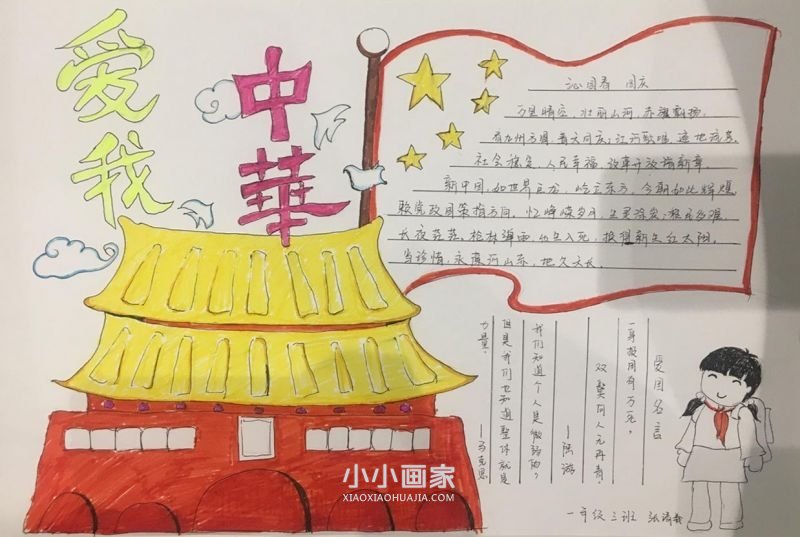 爱我
中華
沁园春 国庆
万里晴空，壮丽山河，赤旗飘扬。
有九州方圆，普天同庆；江河歌唱，遍地
社会稳定，人民幸福，改革开放谱新章。
新中国，如世界巨龙，屹立东方。今朝如此辉煌
赖党政国策指方向。忆峥嵘岁月，生灵涂炭；
长夜茫茫，枪林弹雨，出生入死，换得新生红太阳。
当珍惜，永葆河山泰，地久天长。
爱国名言
一身报国有万死，
双鬓向人无再青。
——陆游
我们知道个人是微弱的，
但是我们也知道整体就是
力量。
——马克思
一年级三班 张
小小画家
XIAOXIAOHUAJIA.COM